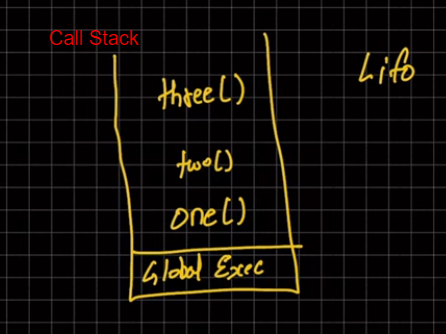 Call Stack
Lifo
three()
two()
one()
Global Exec